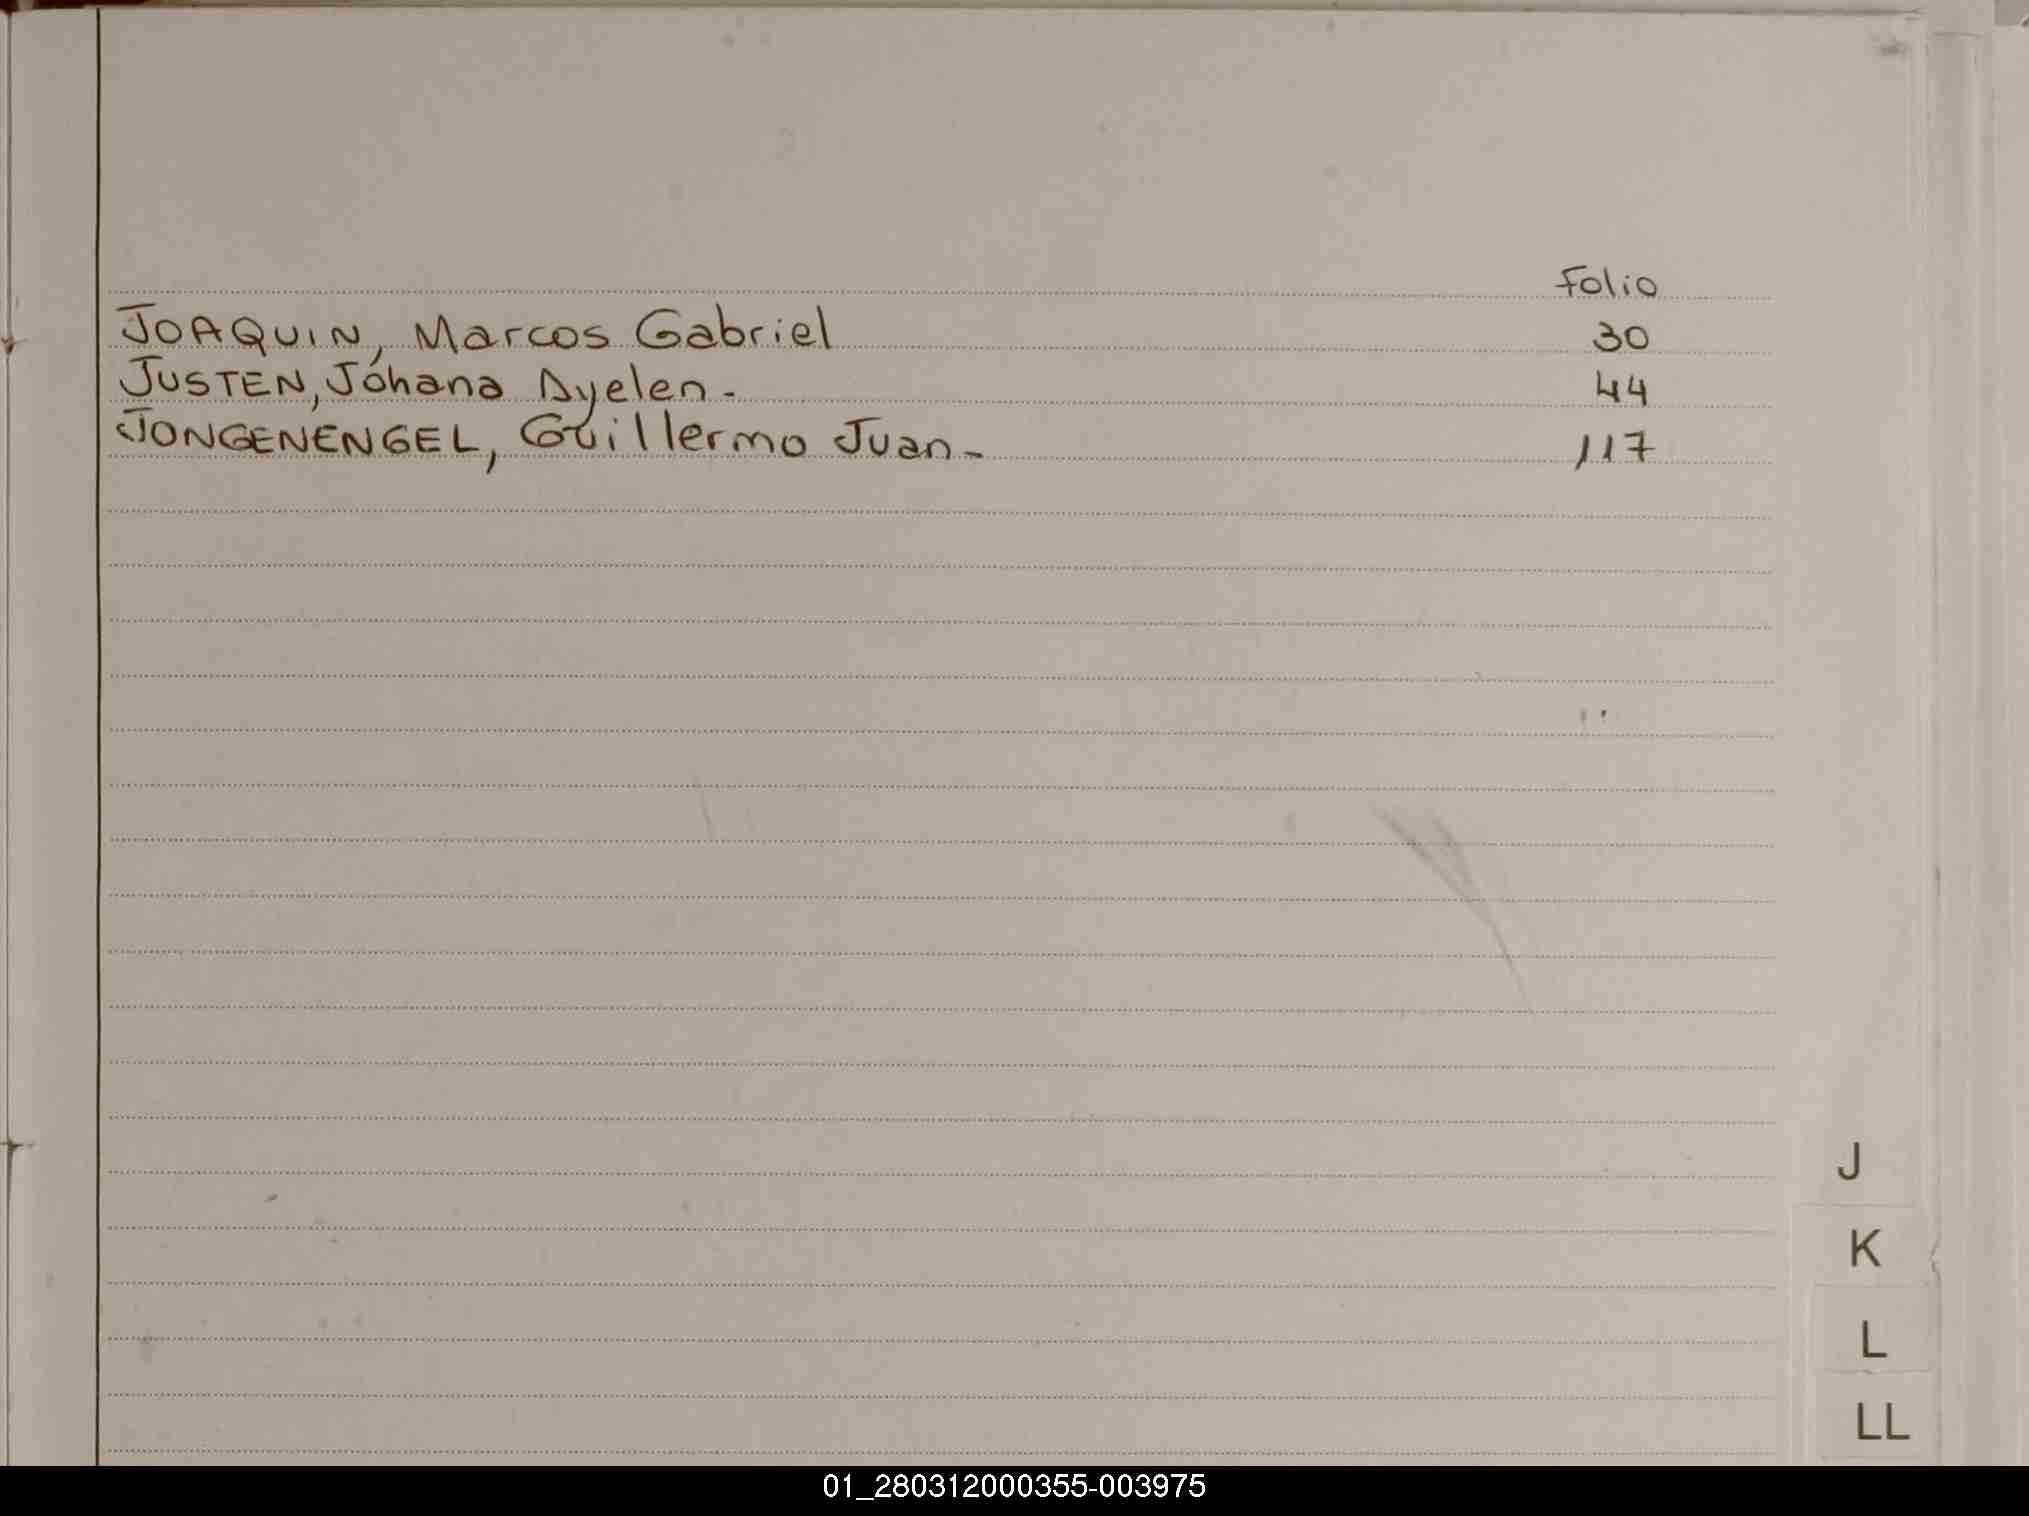 Folio
JOAQUIN, Marcos Gabriel 30
JUSTEN, Jóhana Ayelen. 44
JONGENENGEL, Guillermo Juan- 117
J
K
L
LL
01_280312000355-003975